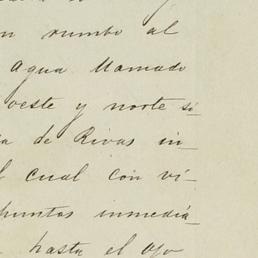 n rumbo al
agua llamado
oeste y norte si
a de Rivas in_
l cual con vi_
puntos inmedia_
hasta el ojo